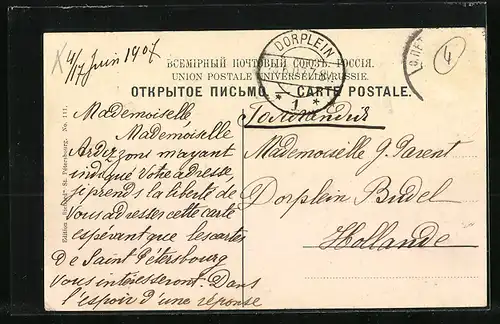 4/7 Juin 1907
DORPLEIN
* 1 *
4
ВСЕМІРНЫЙ ПОЧТОВЫЙ СОЮЗЪ. РОССІЯ.
UNION POSTALE UNIVERSELLE. RUSSIE.
ОТКРЫТОЕ ПИСЬМО. — CARTE POSTALE.
Mademoiselle
Mademoiselle
Ardizzoni m'ayant
indiqué votre adresse,
je prends la liberté de
vous adresser cette carte
espérant que les cartes
de Saint Pétersbourg
vous intéresseront. Dans
l'espoir d'une réponse
Голландія
Mademoiselle G. Parent
Dorplein Budel
Hollande
Edition St. Pétersbourg. No. 111.